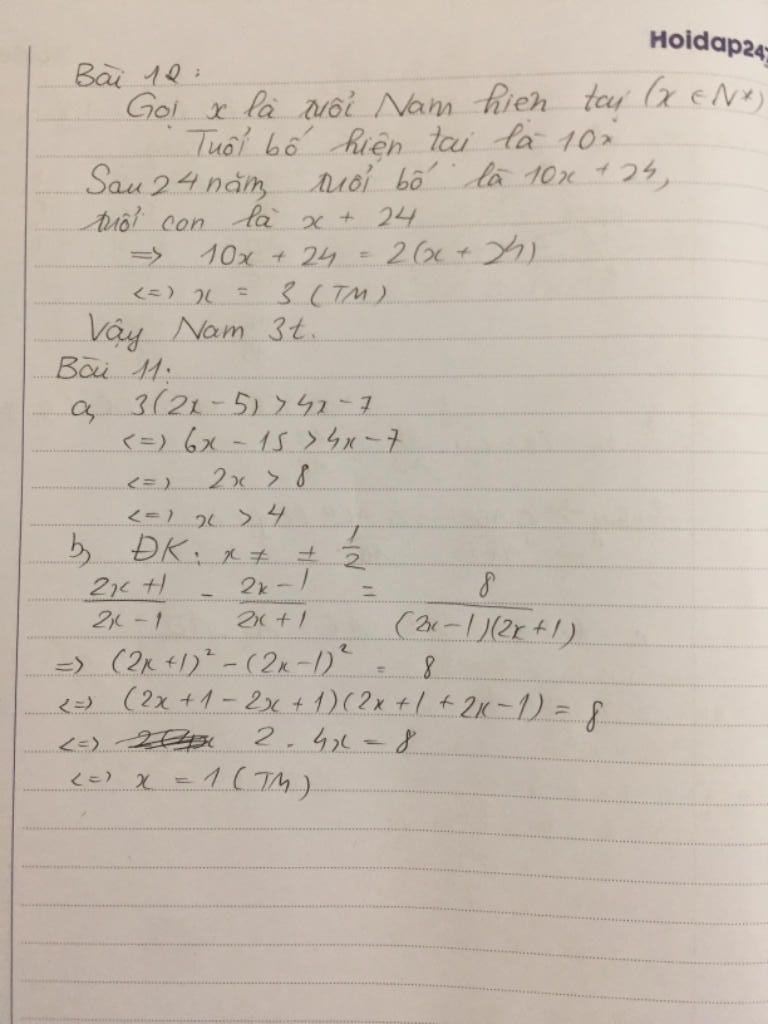 Hoidap247
Bài 12:
Gọi x là tuổi Nam hiện tại (x ∈ N*)
Tuổi bố hiện tai là 10x
Sau 24 năm, tuổi bố là 10x + 24,
tuổi con là x + 24
=> 10x + 24 = 2(x + 24)
<=> x = 3 (TM)
Vậy Nam 3t.
Bài 11:
a, 3(2x - 5) > 4x - 7
<=> 6x - 15 > 4x - 7
<=> 2x > 8
<=> x > 4
b, ĐK: x ≠ ± 1/2
(2x+1)/(2x-1) - (2x-1)/(2x+1) = 8/((2x-1)(2x+1))
=> (2x+1)² - (2x-1)² = 8
<=> (2x+1-2x+1)(2x+1+2x-1) = 8
<=> 2 . 4x = 8
<=> x = 1 (TM)